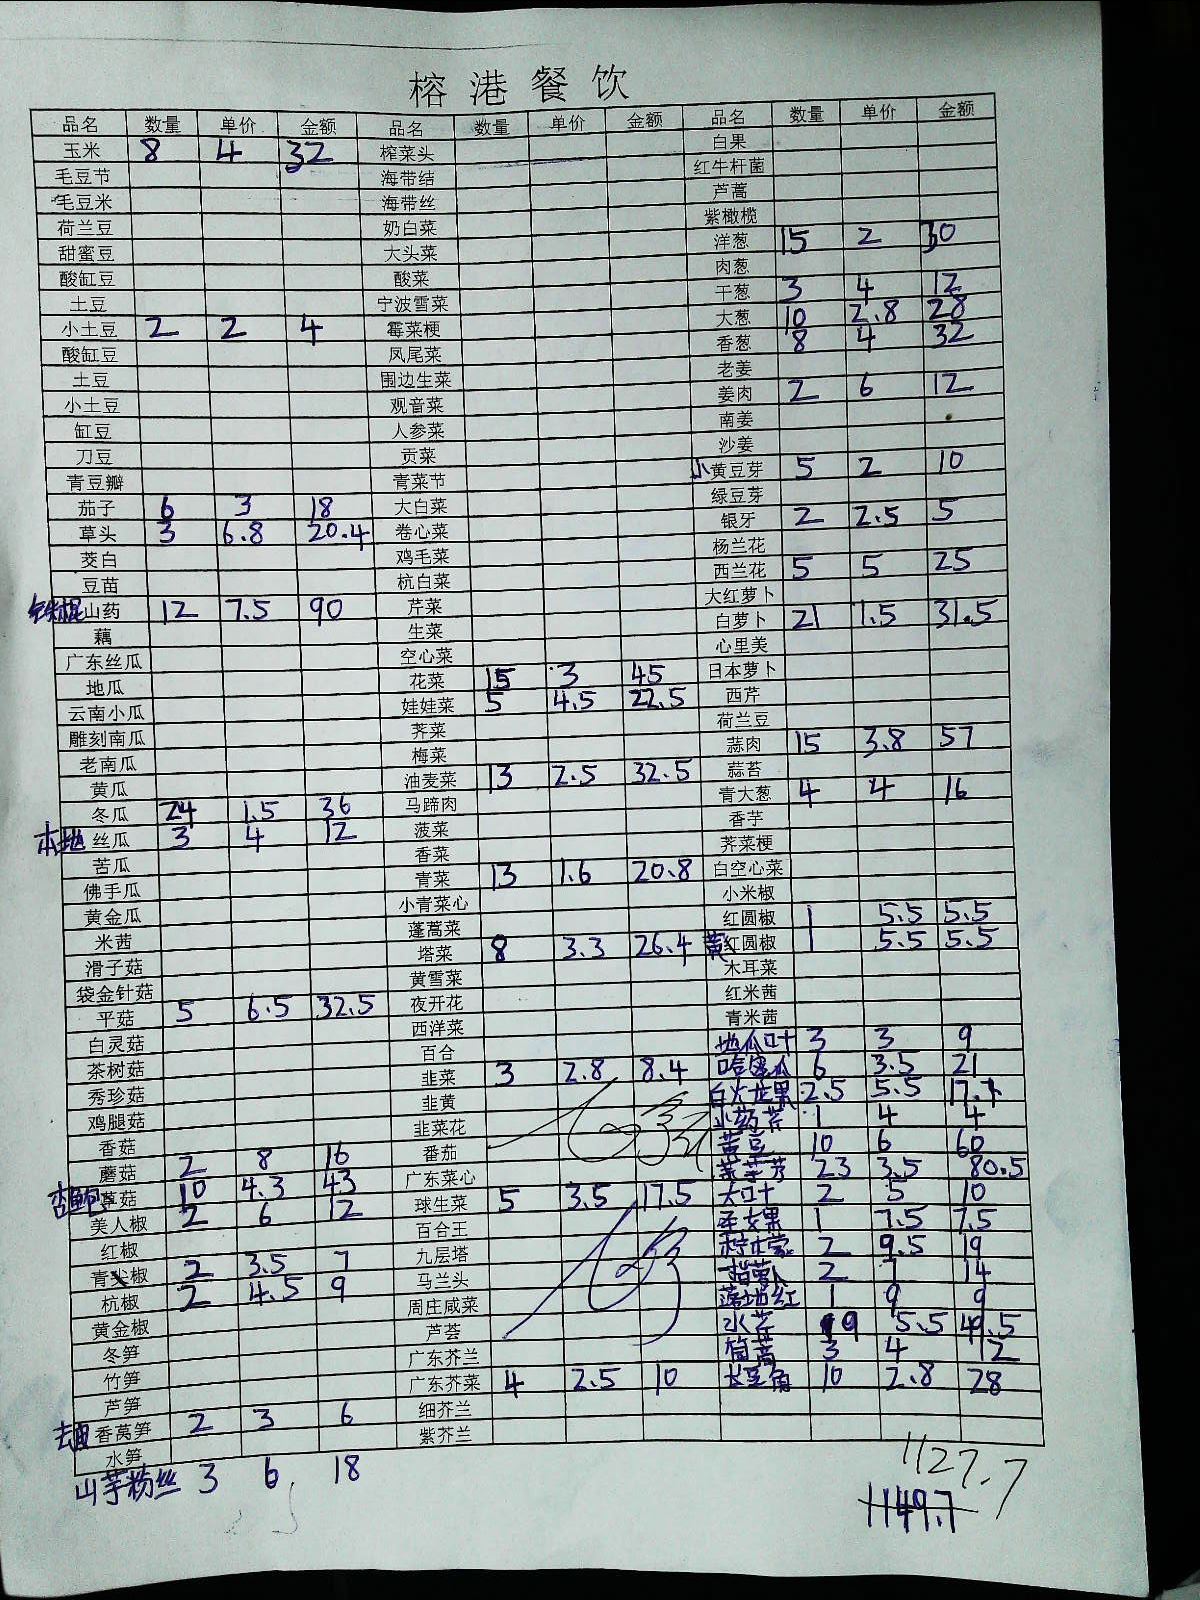 榕港餐饮
品名 数量 单价 金额 品名 数量 单价 金额 品名 数量 单价 金额
玉米 8 4 32 榨菜头 白果
毛豆节 海带结 红牛杆菌
毛豆米 海带丝 芦蒿
荷兰豆 奶白菜 紫橄榄
甜蜜豆 大头菜 洋葱 15 2 30
酸缸豆 酸菜 肉葱
土豆 宁波雪菜 干葱 3 4 12
小土豆 2 2 4 霉菜梗 大葱 10 2.8 28
酸缸豆 凤尾菜 香葱 8 4 32
土豆 围边生菜 老姜
小土豆 观音菜 姜肉 2 6 12
缸豆 人参菜 南姜
刀豆 贡菜 沙姜
青豆瓣 青菜节 小黄豆芽 5 2 10
茄子 6 3 18 大白菜 绿豆芽
草头 3 6.8 20.4 卷心菜 银牙 2 2.5 5
茭白 鸡毛菜 杨兰花
豆苗 杭白菜 西兰花 5 5 25
铁棍山药 12 7.5 90 芹菜 大红萝卜
藕 生菜 白萝卜 21 1.5 31.5
广东丝瓜 空心菜 心里美
地瓜 花菜 15 3 45 日本萝卜
云南小瓜 娃娃菜 5 4.5 22.5 西芹
雕刻南瓜 荠菜 荷兰豆
老南瓜 梅菜 蒜肉 15 3.8 57
黄瓜 油麦菜 13 2.5 32.5 蒜苔
冬瓜 24 1.5 36 马蹄肉 青大葱 4 4 16
本地丝瓜 3 4 12 菠菜 香芋
苦瓜 香菜 荠菜梗
佛手瓜 青菜 13 1.6 20.8 白空心菜
黄金瓜 小青菜心 小米椒
米茜 蓬蒿菜 红圆椒 1 5.5 5.5
滑子菇 塔菜 8 3.3 26.4 黄红圆椒 1 5.5 5.5
袋金针菇 黄雪菜 木耳菜
平菇 5 6.5 32.5 夜开花 红米茜
白灵菇 西洋菜 青米茜
茶树菇 百合 地瓜叶 3 3 9
秀珍菇 韭菜 3 2.8 8.4 哈密瓜 6 3.5 21
鸡腿菇 韭黄 白火龙果 2.5 5.5
香菇 韭菜花 小药芹 1 4 4
蘑菇 2 8 16 番茄 黄豆 10 6 60
杏鲍草菇 10 4.3 43 广东菜心 23 3.5 80.5
美人椒 2 6 12 球生菜 5 3.5 17.5 大叶 2 5 10
红椒 百合王 圣女果 1 7.5 7.5
青尖椒 2 3.5 7 九层塔 柠檬 2 9.5 19
杭椒 2 4.5 9 马兰头 2 7 14
黄金椒 周庄咸菜 落地红 1 9 9
冬笋 芦荟 水芹 9 5.5 49.5
竹笋 广东芥兰 茼蒿 3 4 12
芦笋 广东芥菜 4 2.5 10 长豆角 10 2.8 28
去皮香莴笋 2 3 6 细芥兰
水笋 紫芥兰
山芋粉丝 3 6 18
1127.7
1149.7